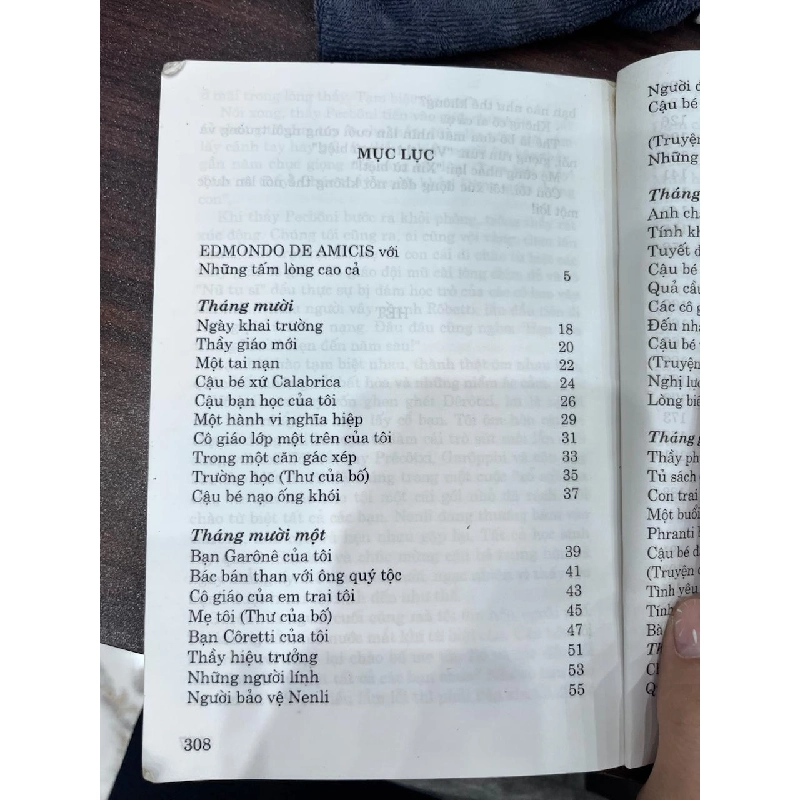 MỤC LỤC
EDMONDO DE AMICIS với
Những tấm lòng cao cả 5
Tháng mười
Ngày khai trường 18
Thầy giáo mới 20
Một tai nạn 22
Cậu bé xứ Calabrica 24
Cậu bạn học của tôi 26
Một hành vi nghĩa hiệp 29
Cô giáo lớp một trên của tôi 31
Trong một căn gác xép 33
Trường học (Thư của bố) 35
Cậu bé nạo ống khói 37
Tháng mười một
Bạn Garônê của tôi 39
Bác bán than với ông quý tộc 41
Cô giáo của em trai tôi 43
Mẹ tôi (Thư của bố) 45
Bạn Côretti của tôi 47
Thầy hiệu trưởng 51
Những người lính 53
Người bảo vệ Nenli 55
308
Người
Cậu bé
(Truyện
Những
Tháng
Anh
Tính
Tuyết
Cậu bé
Quả cầu
Các cô
Đến
Cậu bé
(Truyện
Nghị lực
Lòng
Tháng
Thầy
Tủ sách
Con trai
Một buổi
Phranti
Cậu bé
(Truyện
Tình yêu